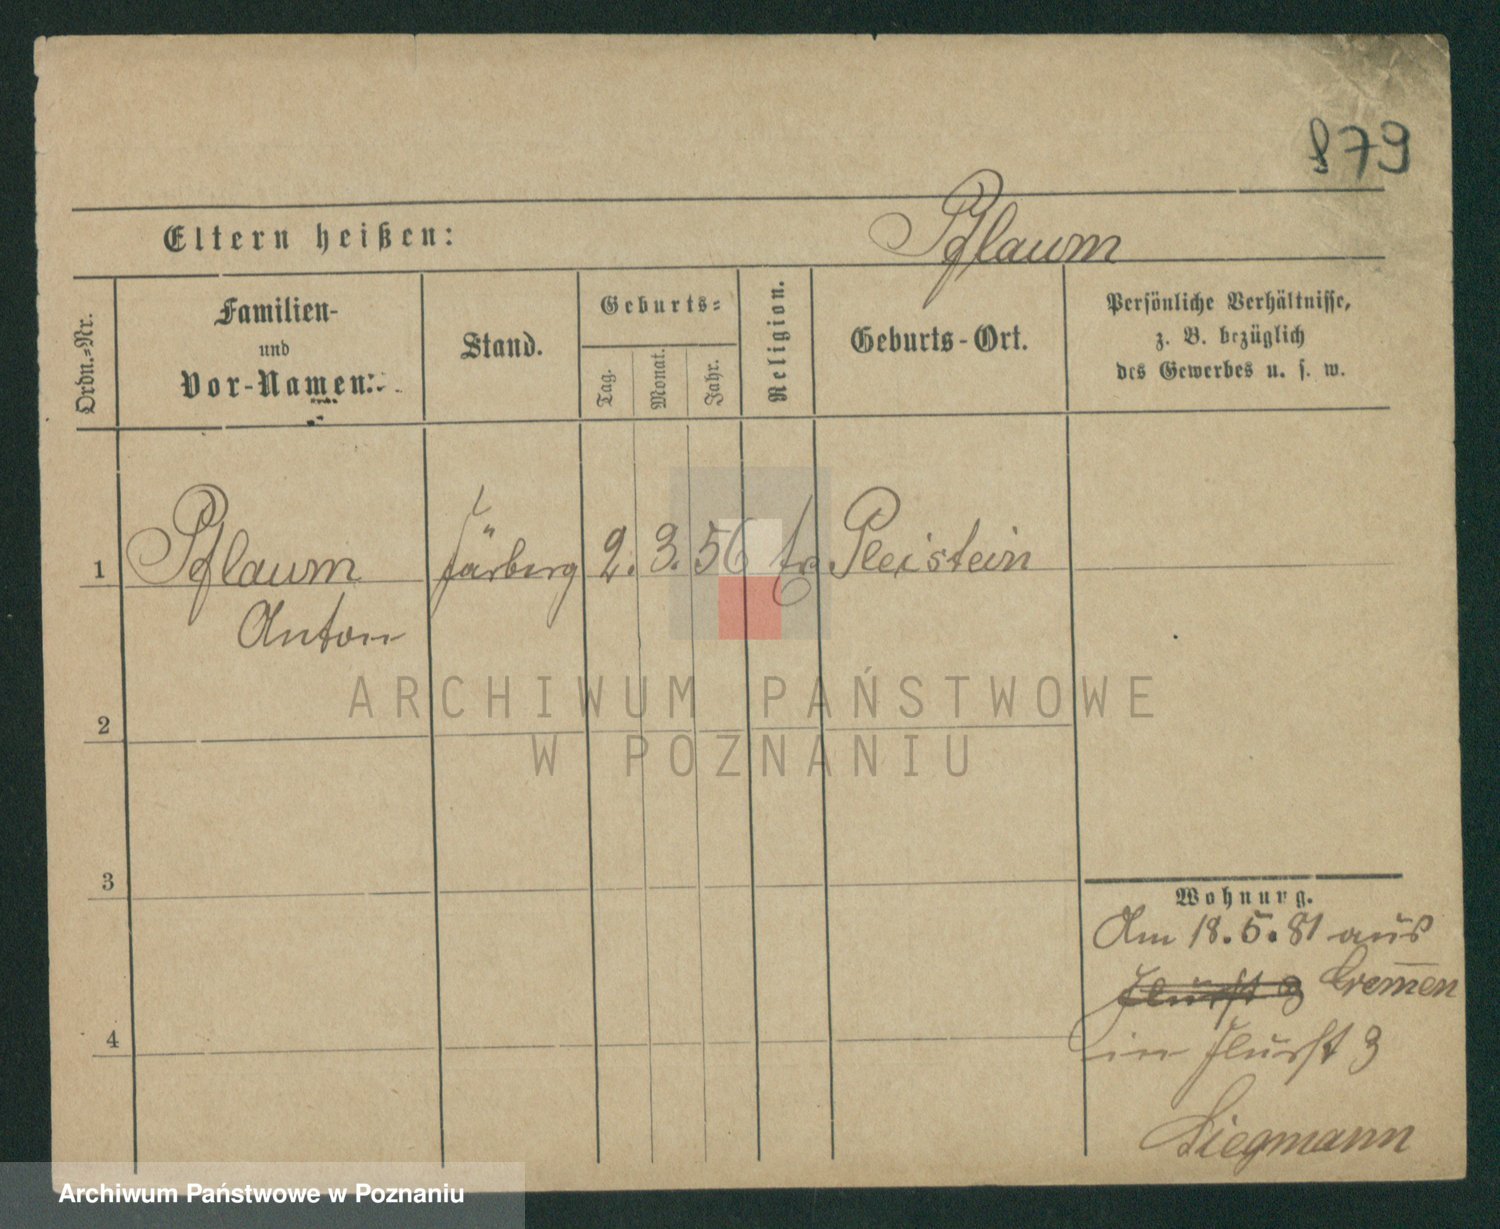 879
Eltern heißen:
Pflaum
Ordn.-Nr.
Familien-
und
Vor-Namen:
Stand.
Geburts-
Tag.
Monat.
Jahr.
Religion.
Geburts-Ort.
Persönliche Verhältnisse,
z. B. bezüglich
des Gewerbes u. s. w.
1 Pflaum 2. 3. 56 Pleistein
Anton
ARCHIWUM PAŃSTWOWE
W POZNANIU
2
3
4
Wohnung.
Am 18.5.81 aus
Flurst 3 Bremen
in Flurst 3
Siegmann
Archiwum Państwowe w Poznaniu